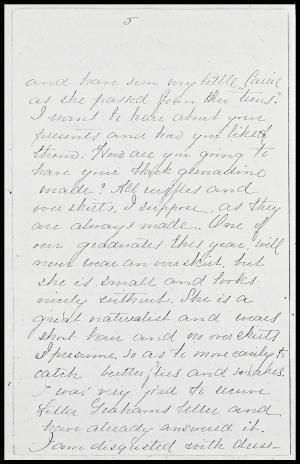 5
and have seen my little "Caisie"
as she passed from her "teens."
I want to hear about your
presents and how you liked
them. How are you going to
have your black grenadine
made? All ruffles and
over skirts, I suppose, as they
are always made. One of
our graduates this year, will
never wear an over skirt, but
she is small and looks
nicely without. She is a
great naturalist and wears
short hair and no over skirts
I presume, so as to more easily to
catch butterflies and snakes.
I was very glad to receive
Lilla Grahams letter and
have already answered it.
I am disgusted with dress-